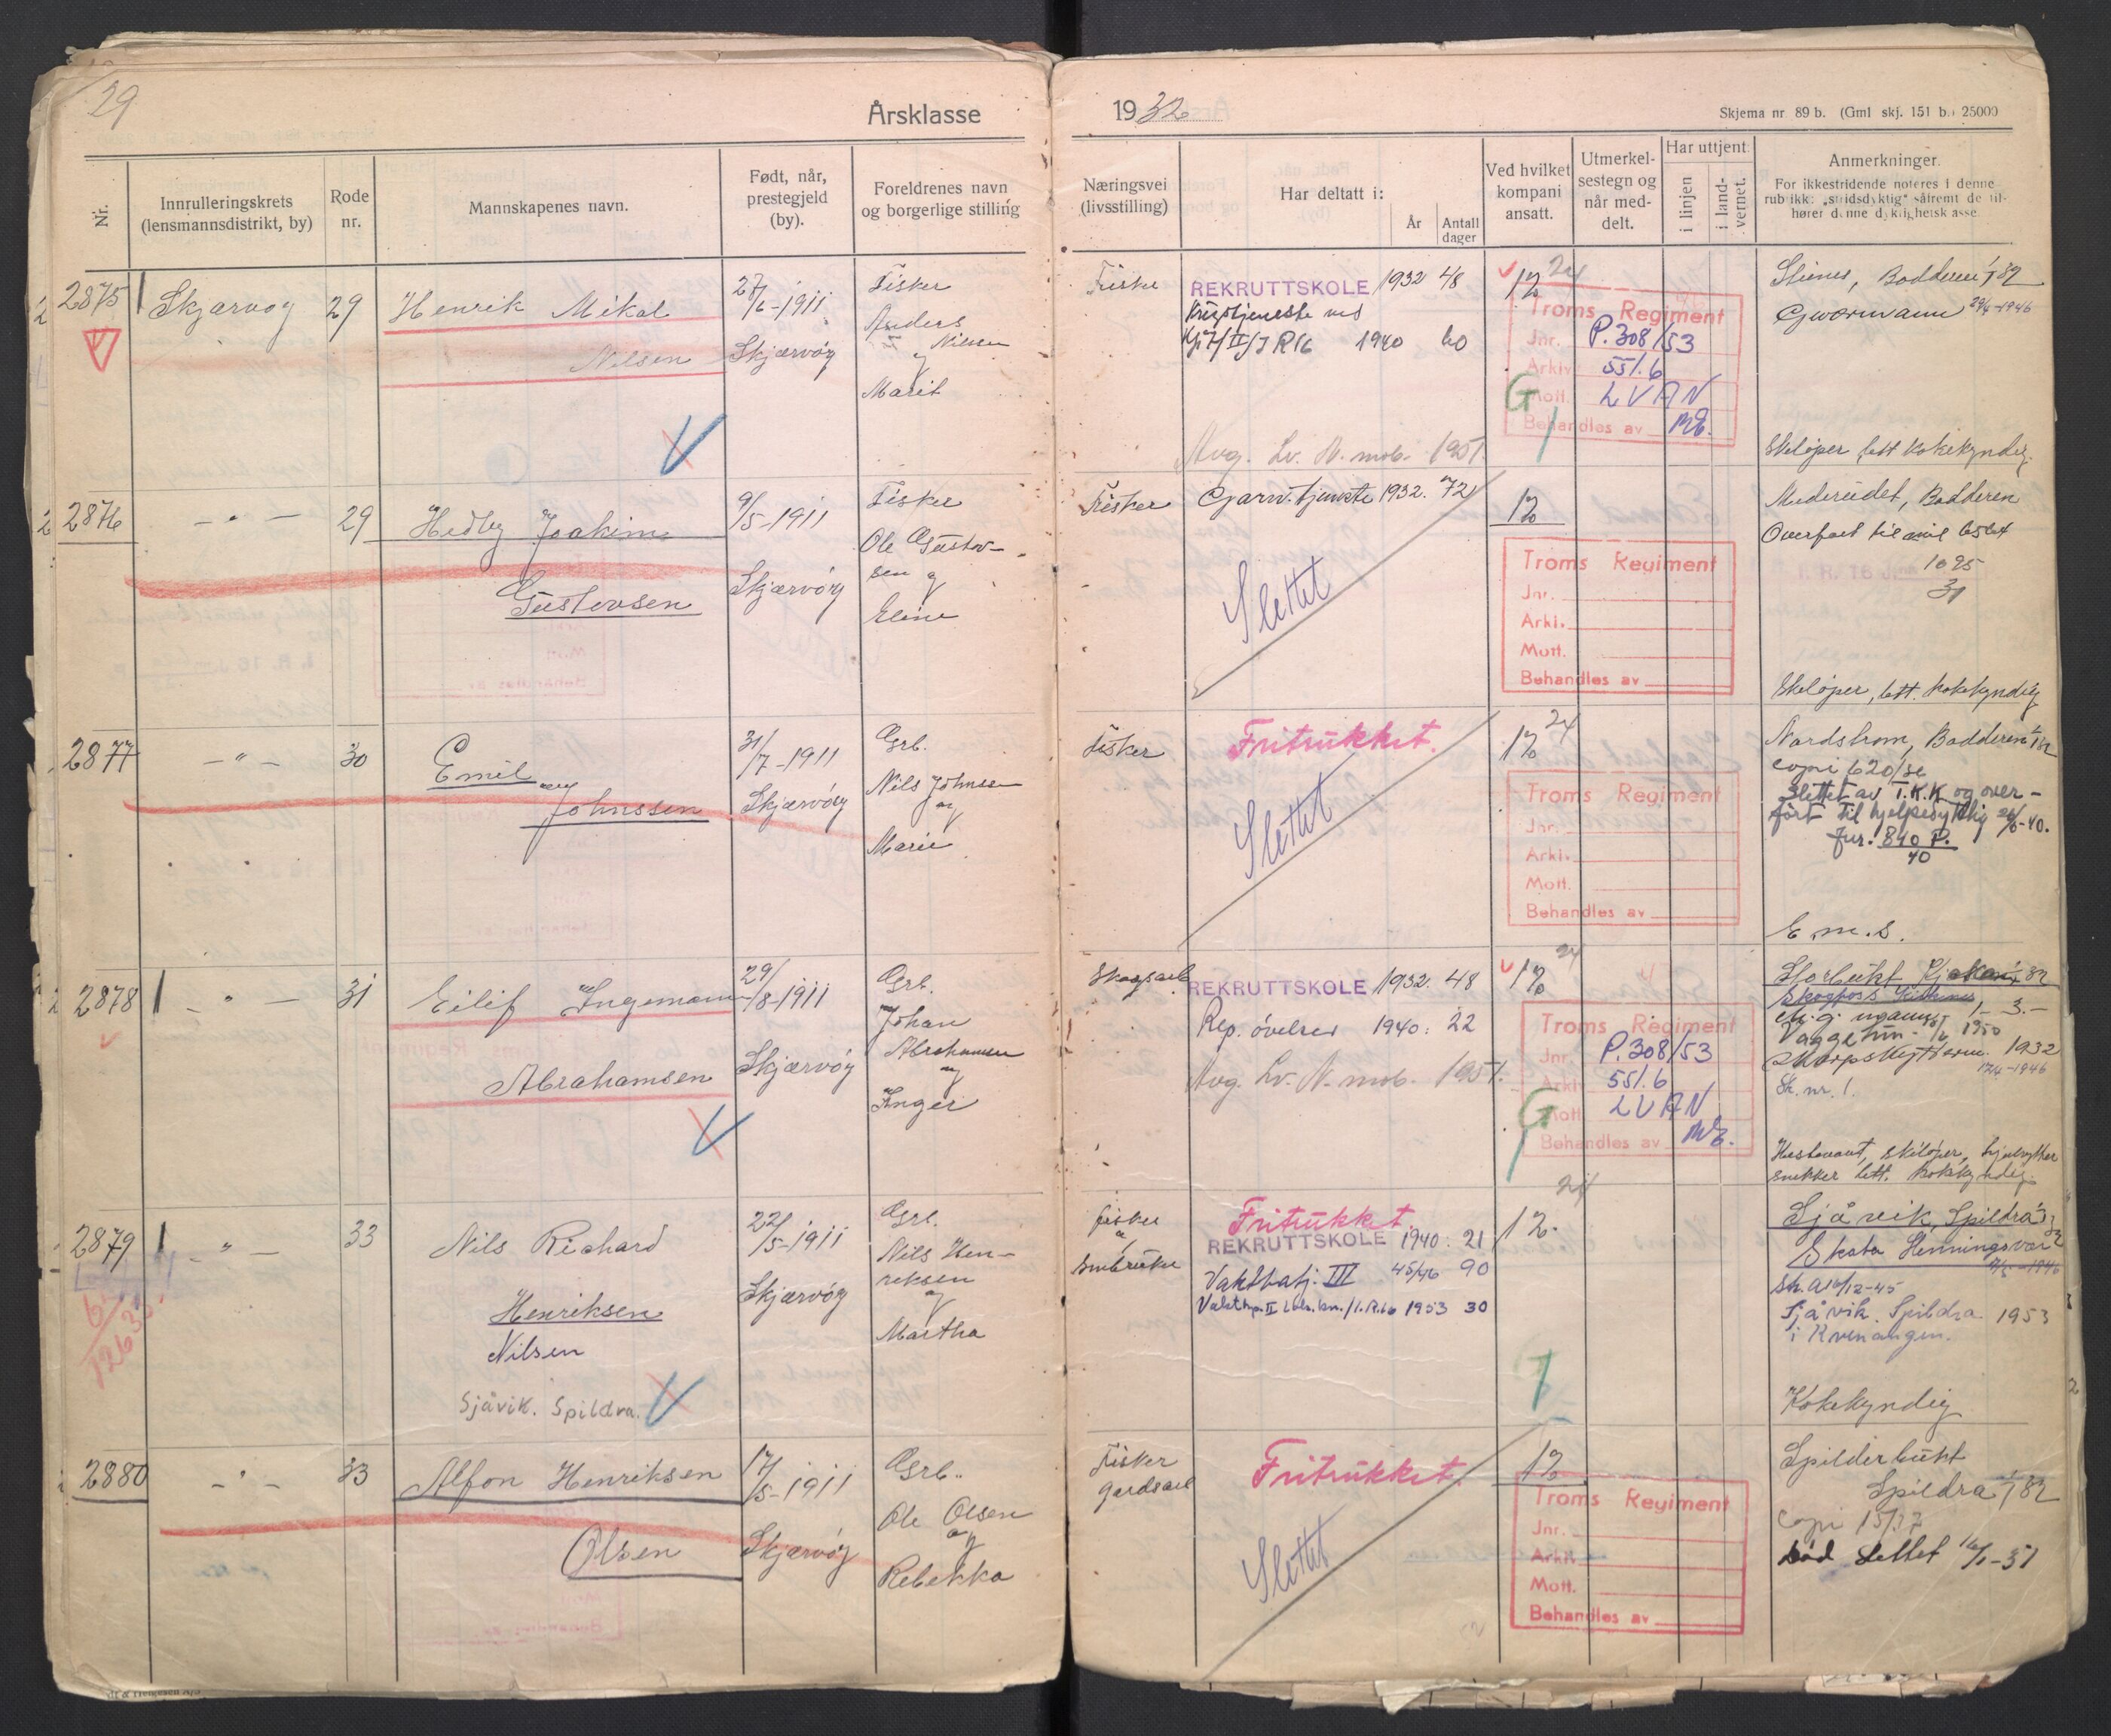 29
Årsklasse
1932
Skjema nr. 89 b. (Gml. skj. 151 b.) 25000
Nr.
Innrulleringskrets
(lensmannsdistrikt, by)
Rode
nr.
Mannskapenes navn.
Født, når,
prestegjeld
(by).
Foreldrenes navn
og borgerlige stilling
Næringsvei
(livsstilling)
Har deltatt i:
År
Antall
dager
Ved hvilket
kompani
ansatt.
Utmerkel-
sestegn og
når med-
delt.
Har uttjent.
i linjen
i land-
vernet.
Anmerkninger.
For ikkestridende noteres i denne
rubrikk: „stridsdyktig" såfremt de til-
hører denne dyktighetsklasse.
2875
Skjærvøy
29
Henrik Mikal
Nilsen
27/6-1911
Skjærvöy
Fisker
Anders
Nilsen
og
Marit
REKRUTTSKOLE 1932 48
Krigstjeneste ved
Kp 7/II/IR16 1940 60
Avg. Lv. N. mob. 1951.
12
24
Troms Regiment
Jnr. P.308/53
Arkiv 551.6
Mott. LVAN
Behandles av
G
Badderen 1/82
29/4-1946
Skiløper, lett kokekyndig.
2876
- " -
29
Hedly Joakim
Gustavsen
9/5-1911
Skjærvöy
Fisker
Ole Gustav-
sen og
Eline
Fisker
Garn. tjeneste 1932. 72
Slettet
12
Troms Regiment
Jnr.
Arkiv.
Mott.
Behandles av
Badderen
Overført til
1025
31
Skiløper, lett. kokekyndig
2877
- " -
30
Emil
Johnssen
31/7-1911
Skjærvöy
Grb.
Nils Johnssen
og
Marie
Fisker
Fritrukket.
Slettet
12
24
Troms Regiment
Jnr.
Arkiv.
Mott.
Behandles av
Nordstrom, Badderen 1/82
Slettet av T.K.K og over-
ført til hjelpedyktig 26/6-40.
Jnr. 840 P.
40
E.m.s.
2878
- " -
31
Eilif Ingemann
Abrahamsen
29/8-1911
Skjærvöy
Grb.
Johan
Abrahamsen
og
Inger
Skogsarb
REKRUTTSKOLE 1932. 48
Rep. øvelser 1940: 22
Avg. Lv. N. mob. 1951.
12
24
Troms Regiment
Jnr. P.308/53
Arkiv 551.6
Mott. LVAN
Behandles av
G
Storbukt
82
1950
Skarpskytterm. 1932
17/4-1946
Sk. nr. 1.
Hestevant, skiløper,
snekker lett. kokkyndig.
2879
- " -
33
Nils Richard
Henriksen
Nilsen
Sjåvik. Spildra.
22/5-1911
Skjærvöy
Grb.
Nils Hen-
riksen
og
Martha
Fisker
småbruker
Fritrukket.
REKRUTTSKOLE 1940: 21
Vaktbatj. III 45/46 90
1953 30
12.
24
Sjåvik, Spildra
Henningsvær
Sjåvik. Spildra 1953
i Kvenangen.
Kokekyndig
2880
- " -
33
Alfon Henriksen
Olsen
17/5-1911
Skjærvöy
Grb.
Ole Olsen
og
Rebekka
Fisker
gardsarb
Fritrukket.
Slettet
12
Troms Regiment
Jnr.
Arkiv.
Mott.
Behandles av
Spilderbukt
Spildra 1/82
Copi 15/37
Død slettet